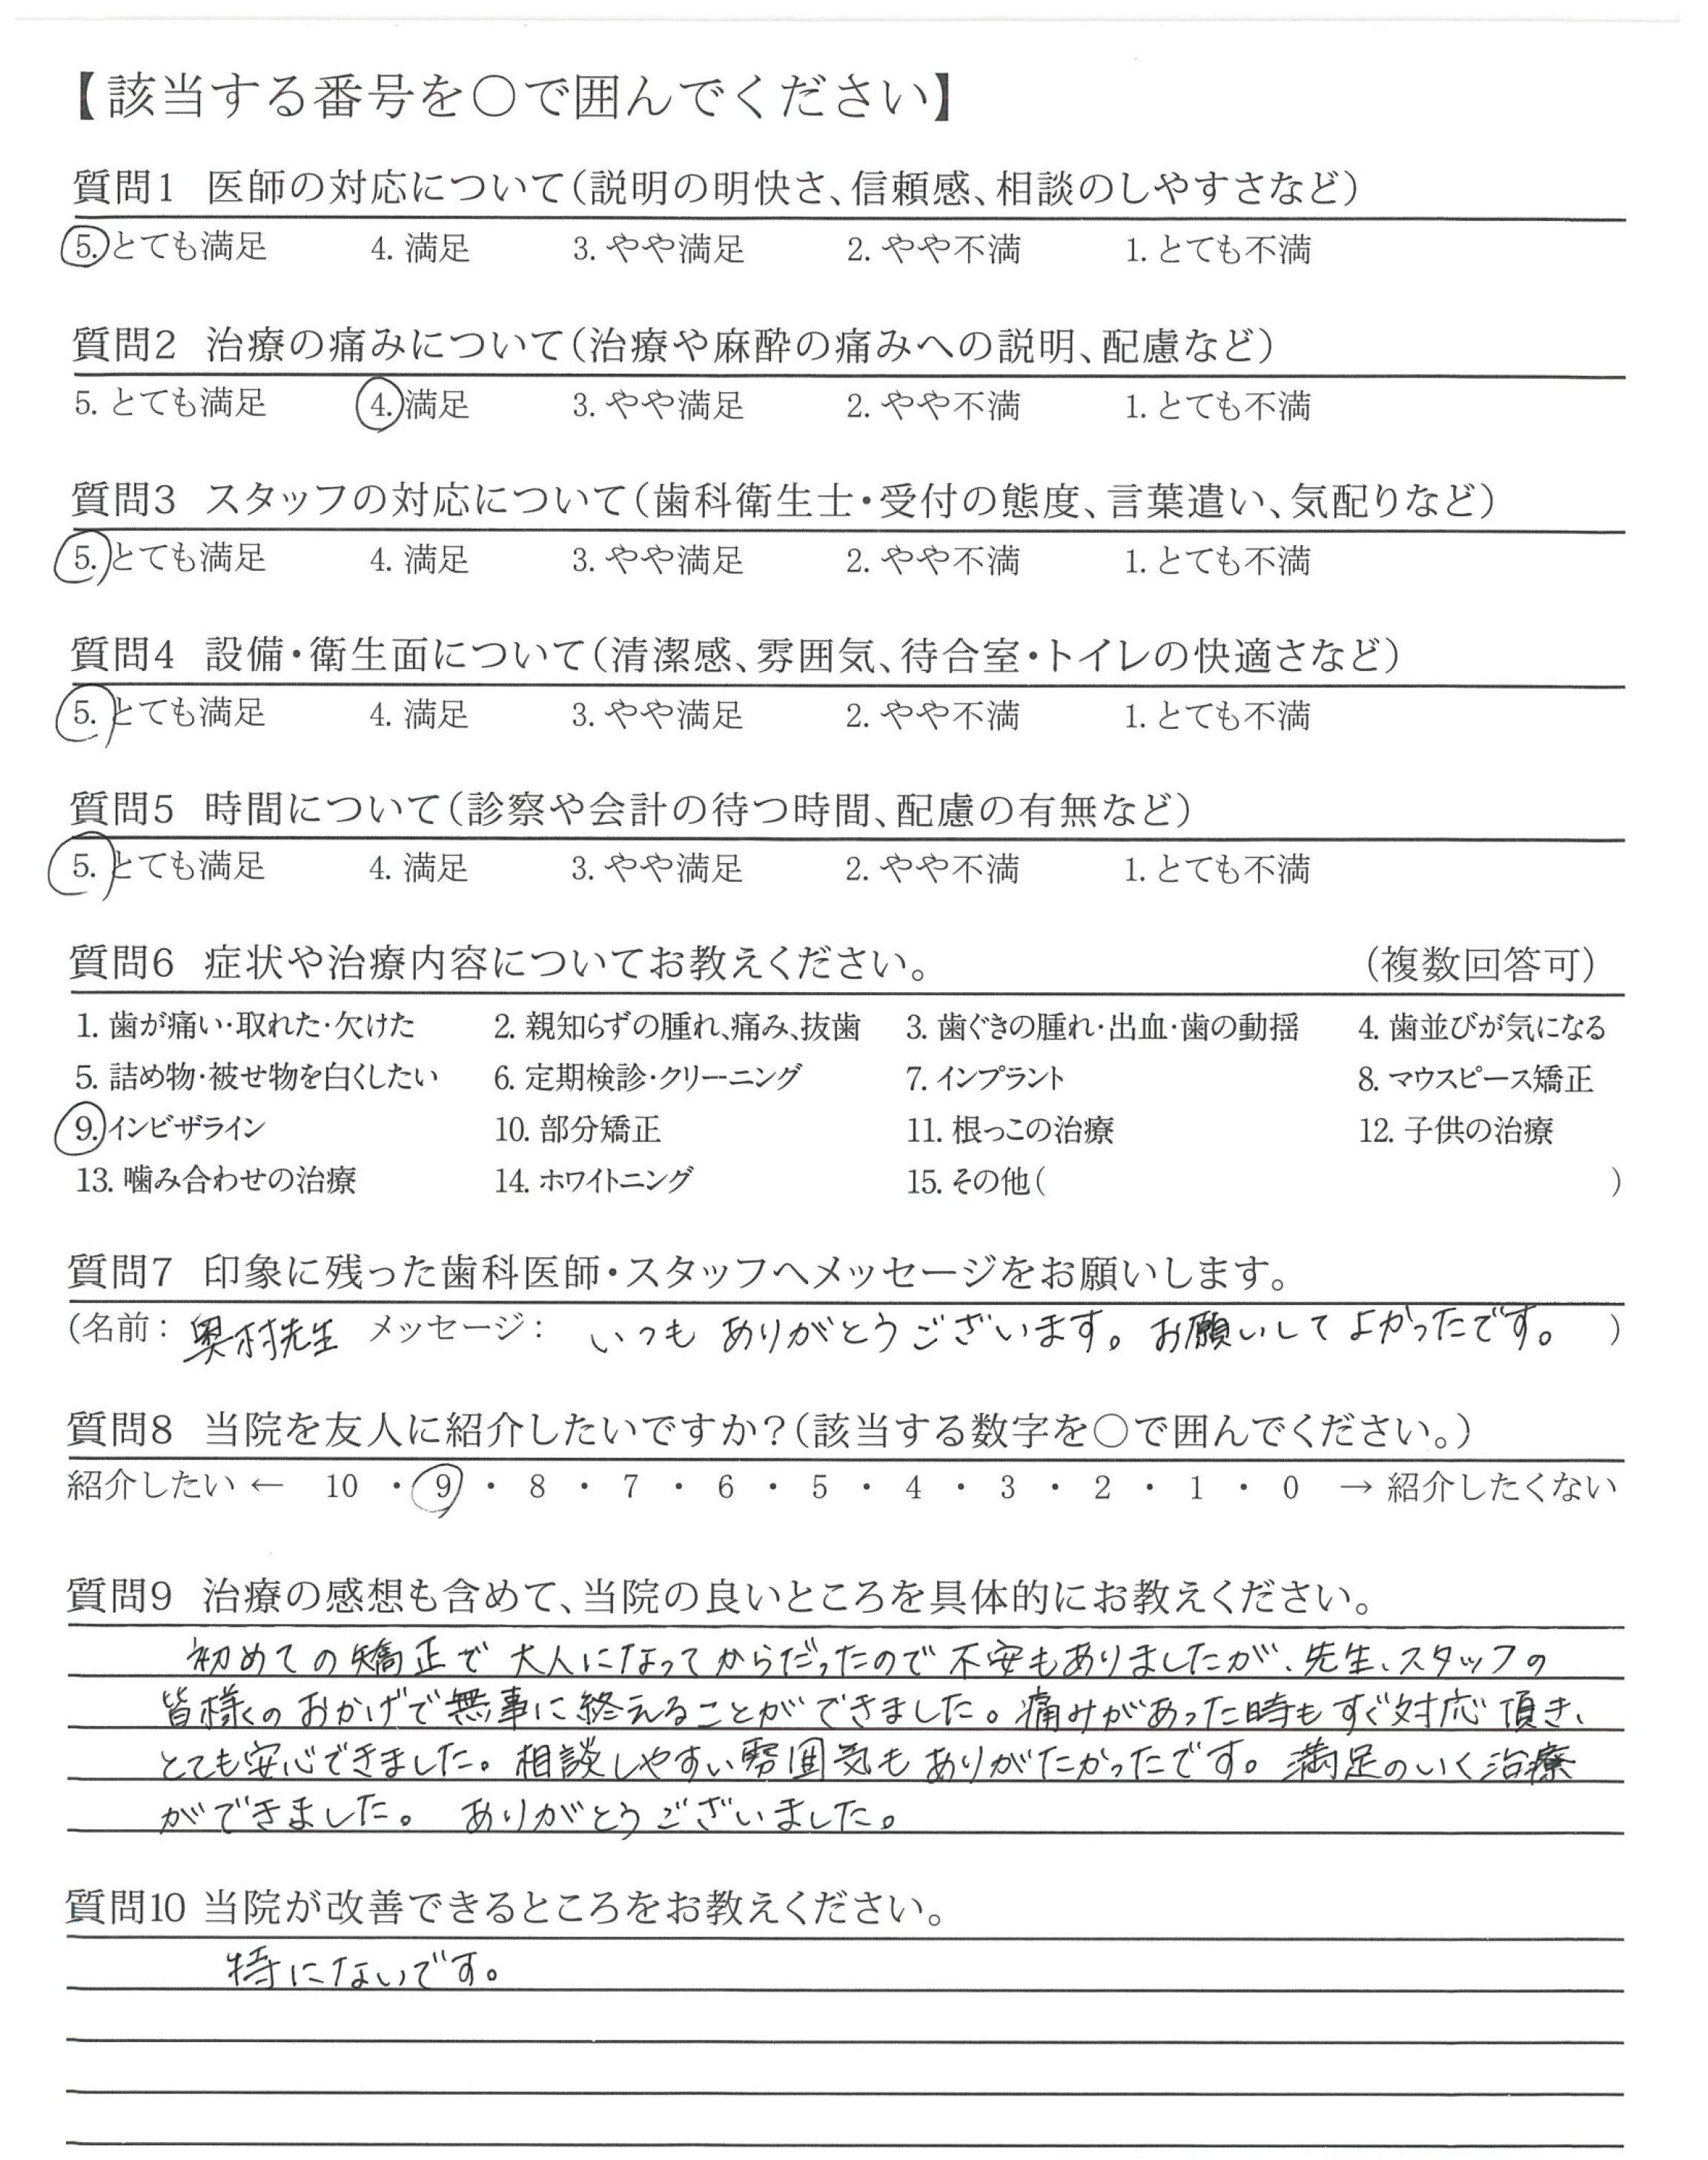 【該当する番号を○で囲んでください】
質問1 医師の対応について(説明の明快さ、信頼感、相談のしやすさなど)
5. とても満足 4. 満足 3. やや満足 2. やや不満 1. とても不満
質問2 治療の痛みについて(治療や麻酔の痛みへの説明、配慮など)
5. とても満足 4. 満足 3. やや満足 2. やや不満 1. とても不満
質問3 スタッフの対応について(歯科衛生士・受付の態度、言葉遣い、気配りなど)
5. とても満足 4. 満足 3. やや満足 2. やや不満 1. とても不満
質問4 設備・衛生面について(清潔感、雰囲気、待合室・トイレの快適さなど)
5. とても満足 4. 満足 3. やや満足 2. やや不満 1. とても不満
質問5 時間について(診察や会計の待つ時間、配慮の有無など)
5. とても満足 4. 満足 3. やや満足 2. やや不満 1. とても不満
質問6 症状や治療内容についてお教えください。 (複数回答可)
1. 歯が痛い・取れた・欠けた 2. 親知らずの腫れ、痛み、抜歯 3. 歯ぐきの腫れ・出血・歯の動揺 4. 歯並びが気になる
5. 詰め物・被せ物を白くしたい 6. 定期検診・クリーニング 7. インプラント 8. マウスピース矯正
9. インビザライン 10. 部分矯正 11. 根っこの治療 12. 子供の治療
13. 噛み合わせの治療 14. ホワイトニング 15. その他( )
質問7 印象に残った歯科医師・スタッフへメッセージをお願いします。
(名前: 奥村先生 メッセージ: いつも ありがとうございます。お願いして よかったです。 )
質問8 当院を友人に紹介したいですか?(該当する数字を○で囲んでください。)
紹介したい ← 10 ・ 9 ・ 8 ・ 7 ・ 6 ・ 5 ・ 4 ・ 3 ・ 2 ・ 1 ・ 0 → 紹介したくない
質問9 治療の感想も含めて、当院の良いところを具体的にお教えください。
初めての矯正で 大人になってからだったので 不安もありましたが、先生、スタッフの
皆様のおかげで無事に終えることができました。痛みがあった時もすぐ対応頂き、
とても安心できました。相談しやすい雰囲気もありがたかったです。満足のいく治療
ができました。 ありがとうございました。
質問10 当院が改善できるところをお教えください。
特にないです。